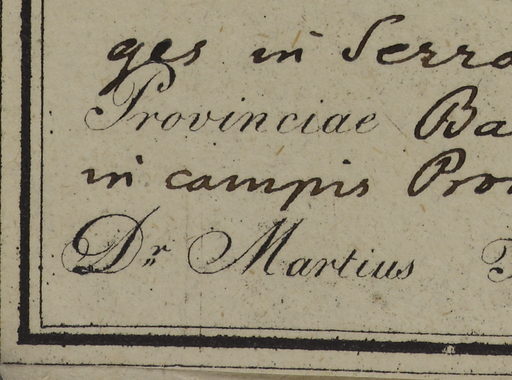 ges in Serro
Provinciae Ba
in campis Pro
Dr. Martius